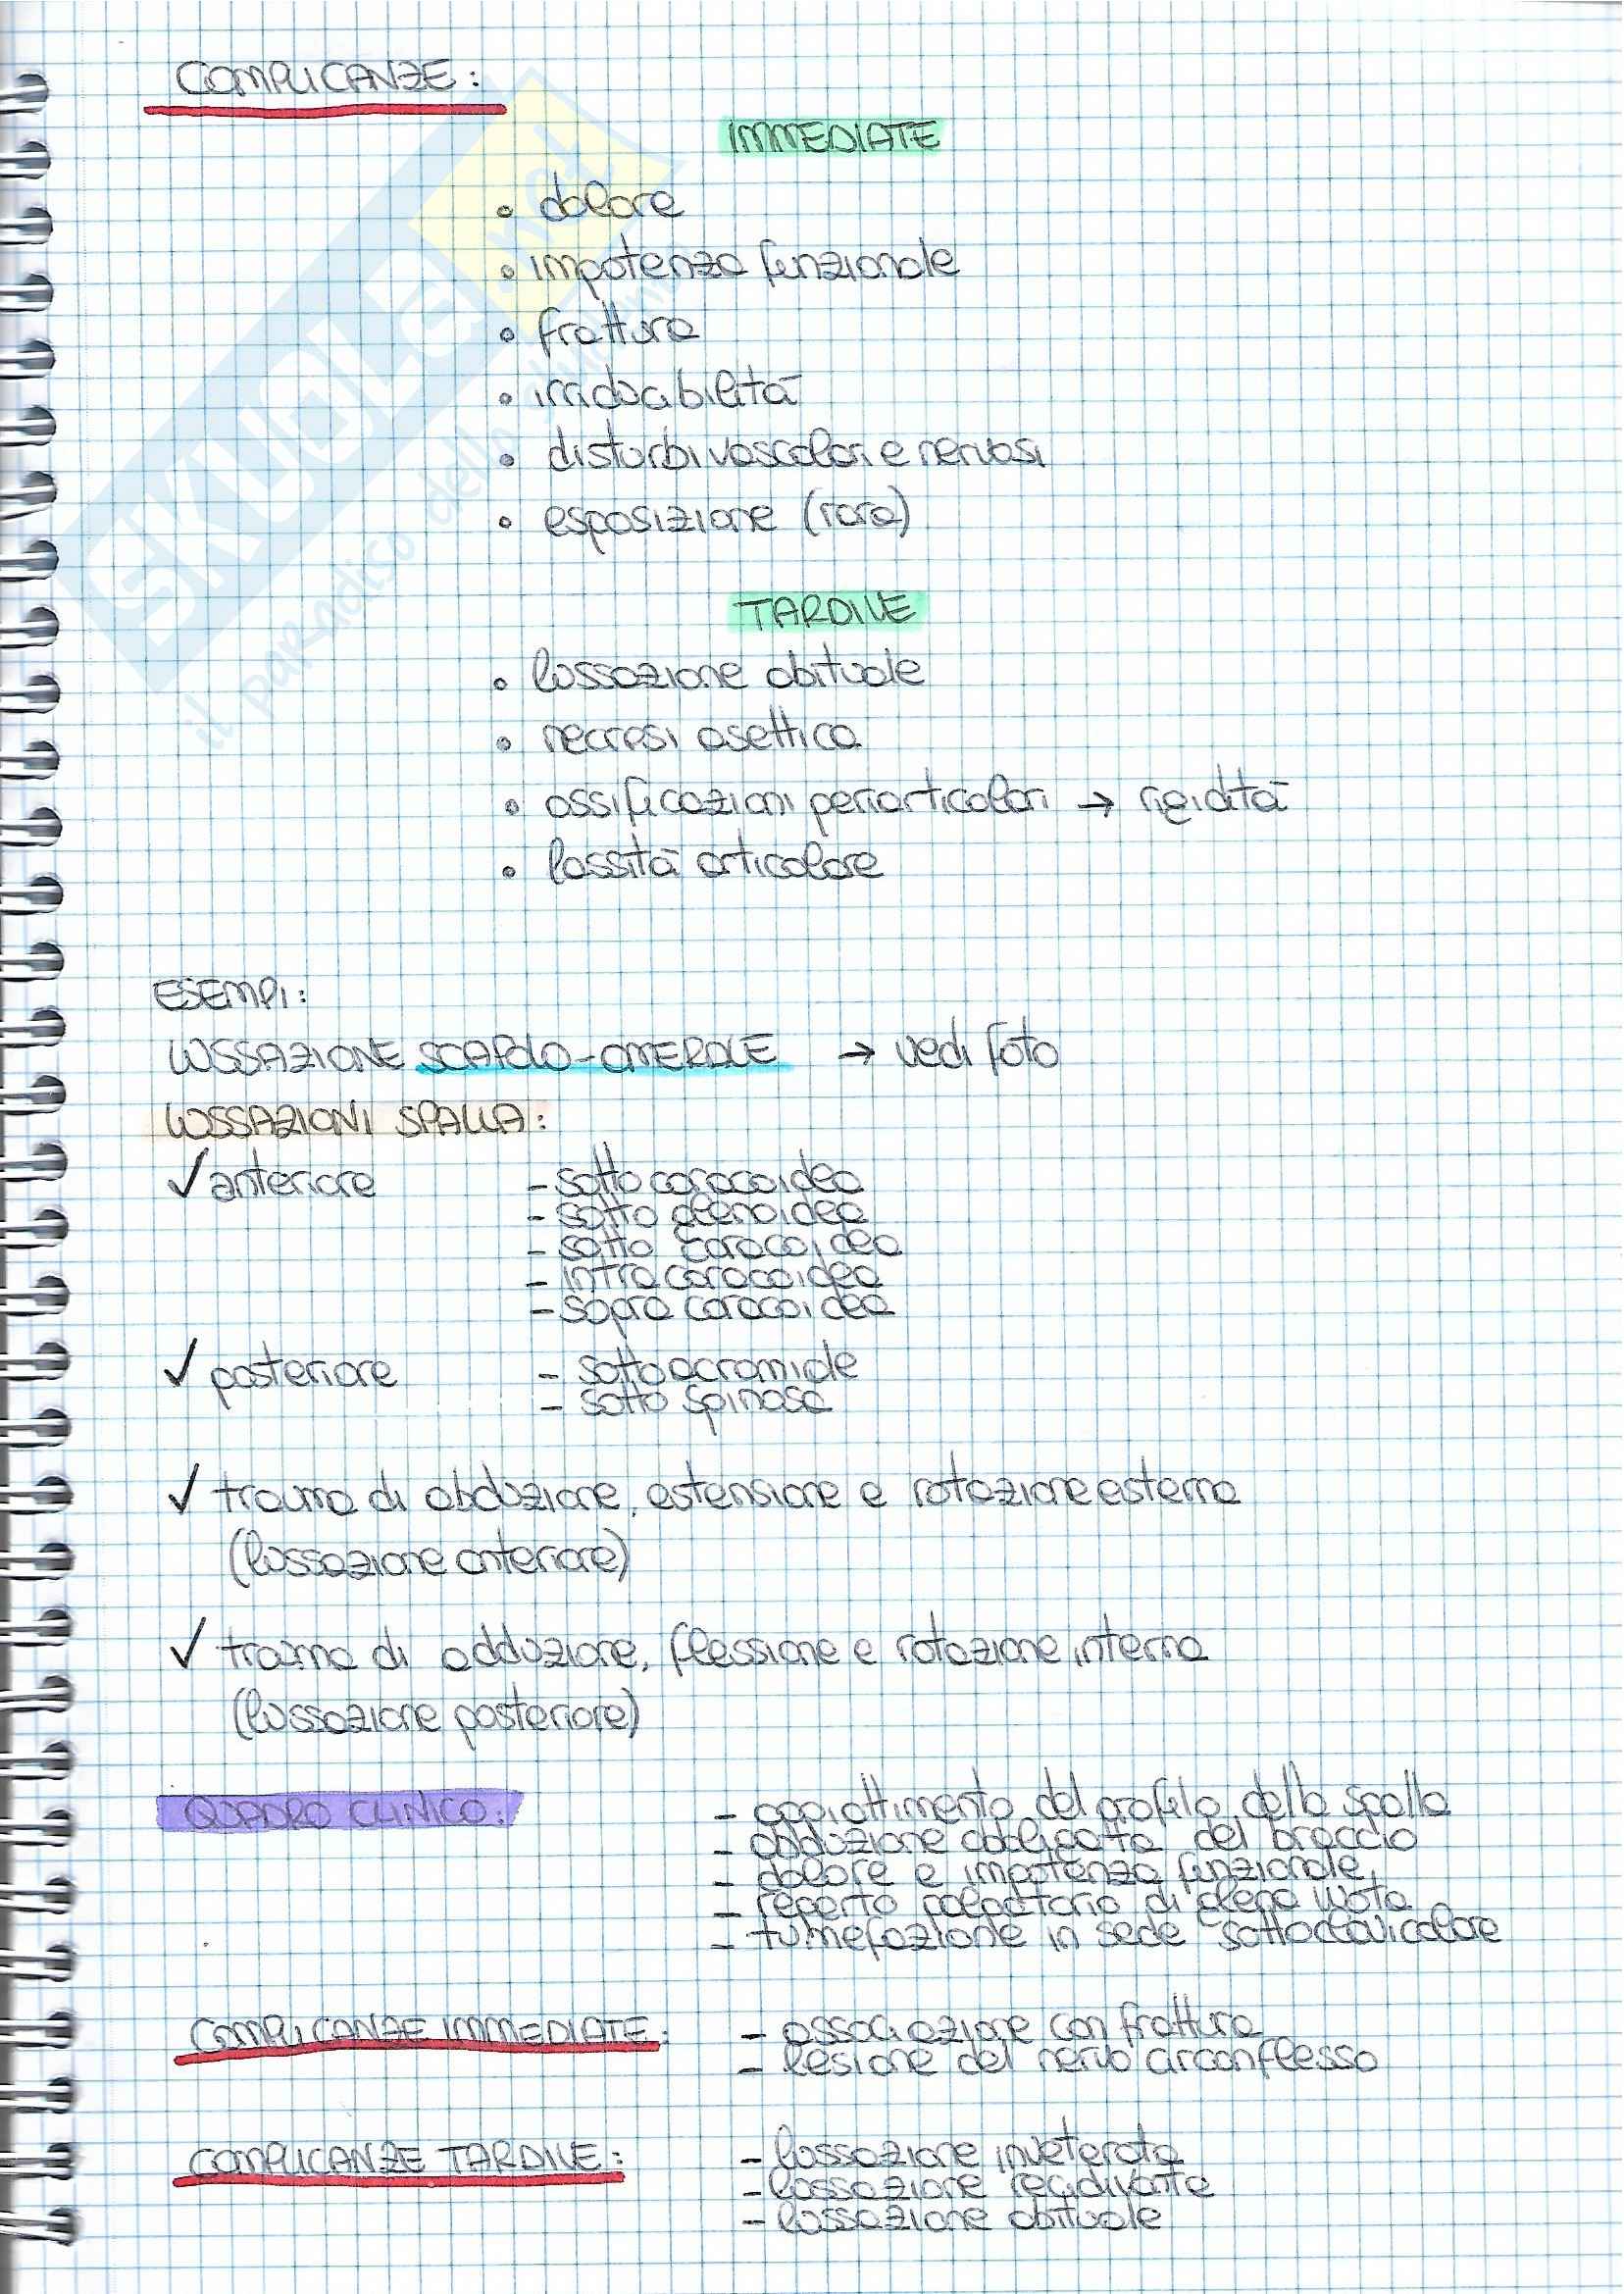 COMPLICANZE:
IMMEDIATE
• dolore
• impotenza funzionale
• frattura
• irriducibilità
• disturbi vascolari e nervosi
• esposizione (rara)
TARDIVE
• lussazione abituale
• necrosi asettica
• ossificazioni periarticolari → rigidità
• lassità articolare
ESEMPI:
LUSSAZIONE SCAPOLO-OMERALE → vedi foto
LUSSAZIONI SPALLA:
✓ anteriore - sotto coracoidea
- sotto glenoidea
- sotto coracoidea
- intra coracoidea
- sopra coracoidea
✓ posteriore - sottoacromiale
- sotto spinosa
✓ trauma di abduzione, estensione e rotazione esterna
(lussazione anteriore)
✓ trauma di adduzione, flessione e rotazione interna
(lussazione posteriore)
QUADRO CLINICO: - appiattimento del profilo della spalla
- abduzione obbligatta del braccio
- dolore e impotenza funzionale
- reperto palpatorio di glena vuota
- tumefazione in sede sottoclavicolare
COMPLICANZE IMMEDIATE: - associazione con frattura
- lesione del nervo circonflesso
COMPLICANZE TARDIVE: - lussazione inveterata
- lussazione recidivante
- lussazione abituale
SKUOLA.net
il paradiso dello studente